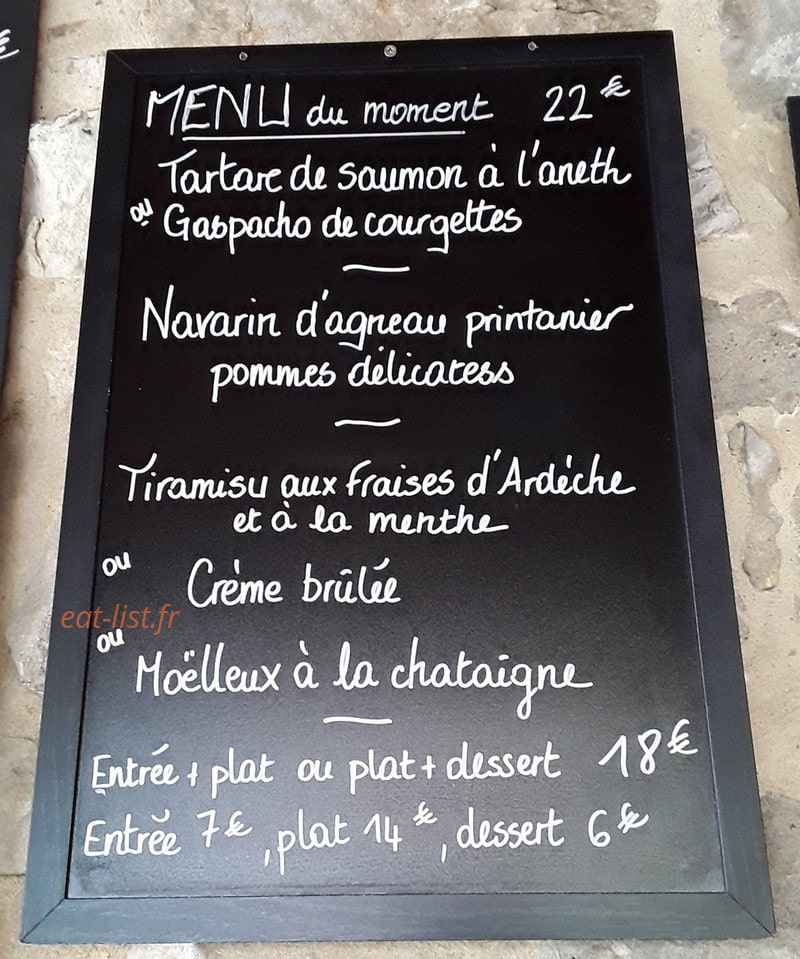 €
MENU du moment 22€
Tartare de saumon à l'aneth
ou Gaspacho de courgettes
Navarin d'agneau printanier
pommes délicatess
Tiramisu aux fraises d'Ardèche
et à la menthe
ou Crème brûlée
eat-list.fr
ou Moëlleux à la chataigne
Entrée + plat ou plat + dessert 18€
Entrée 7€, plat 14€, dessert 6€